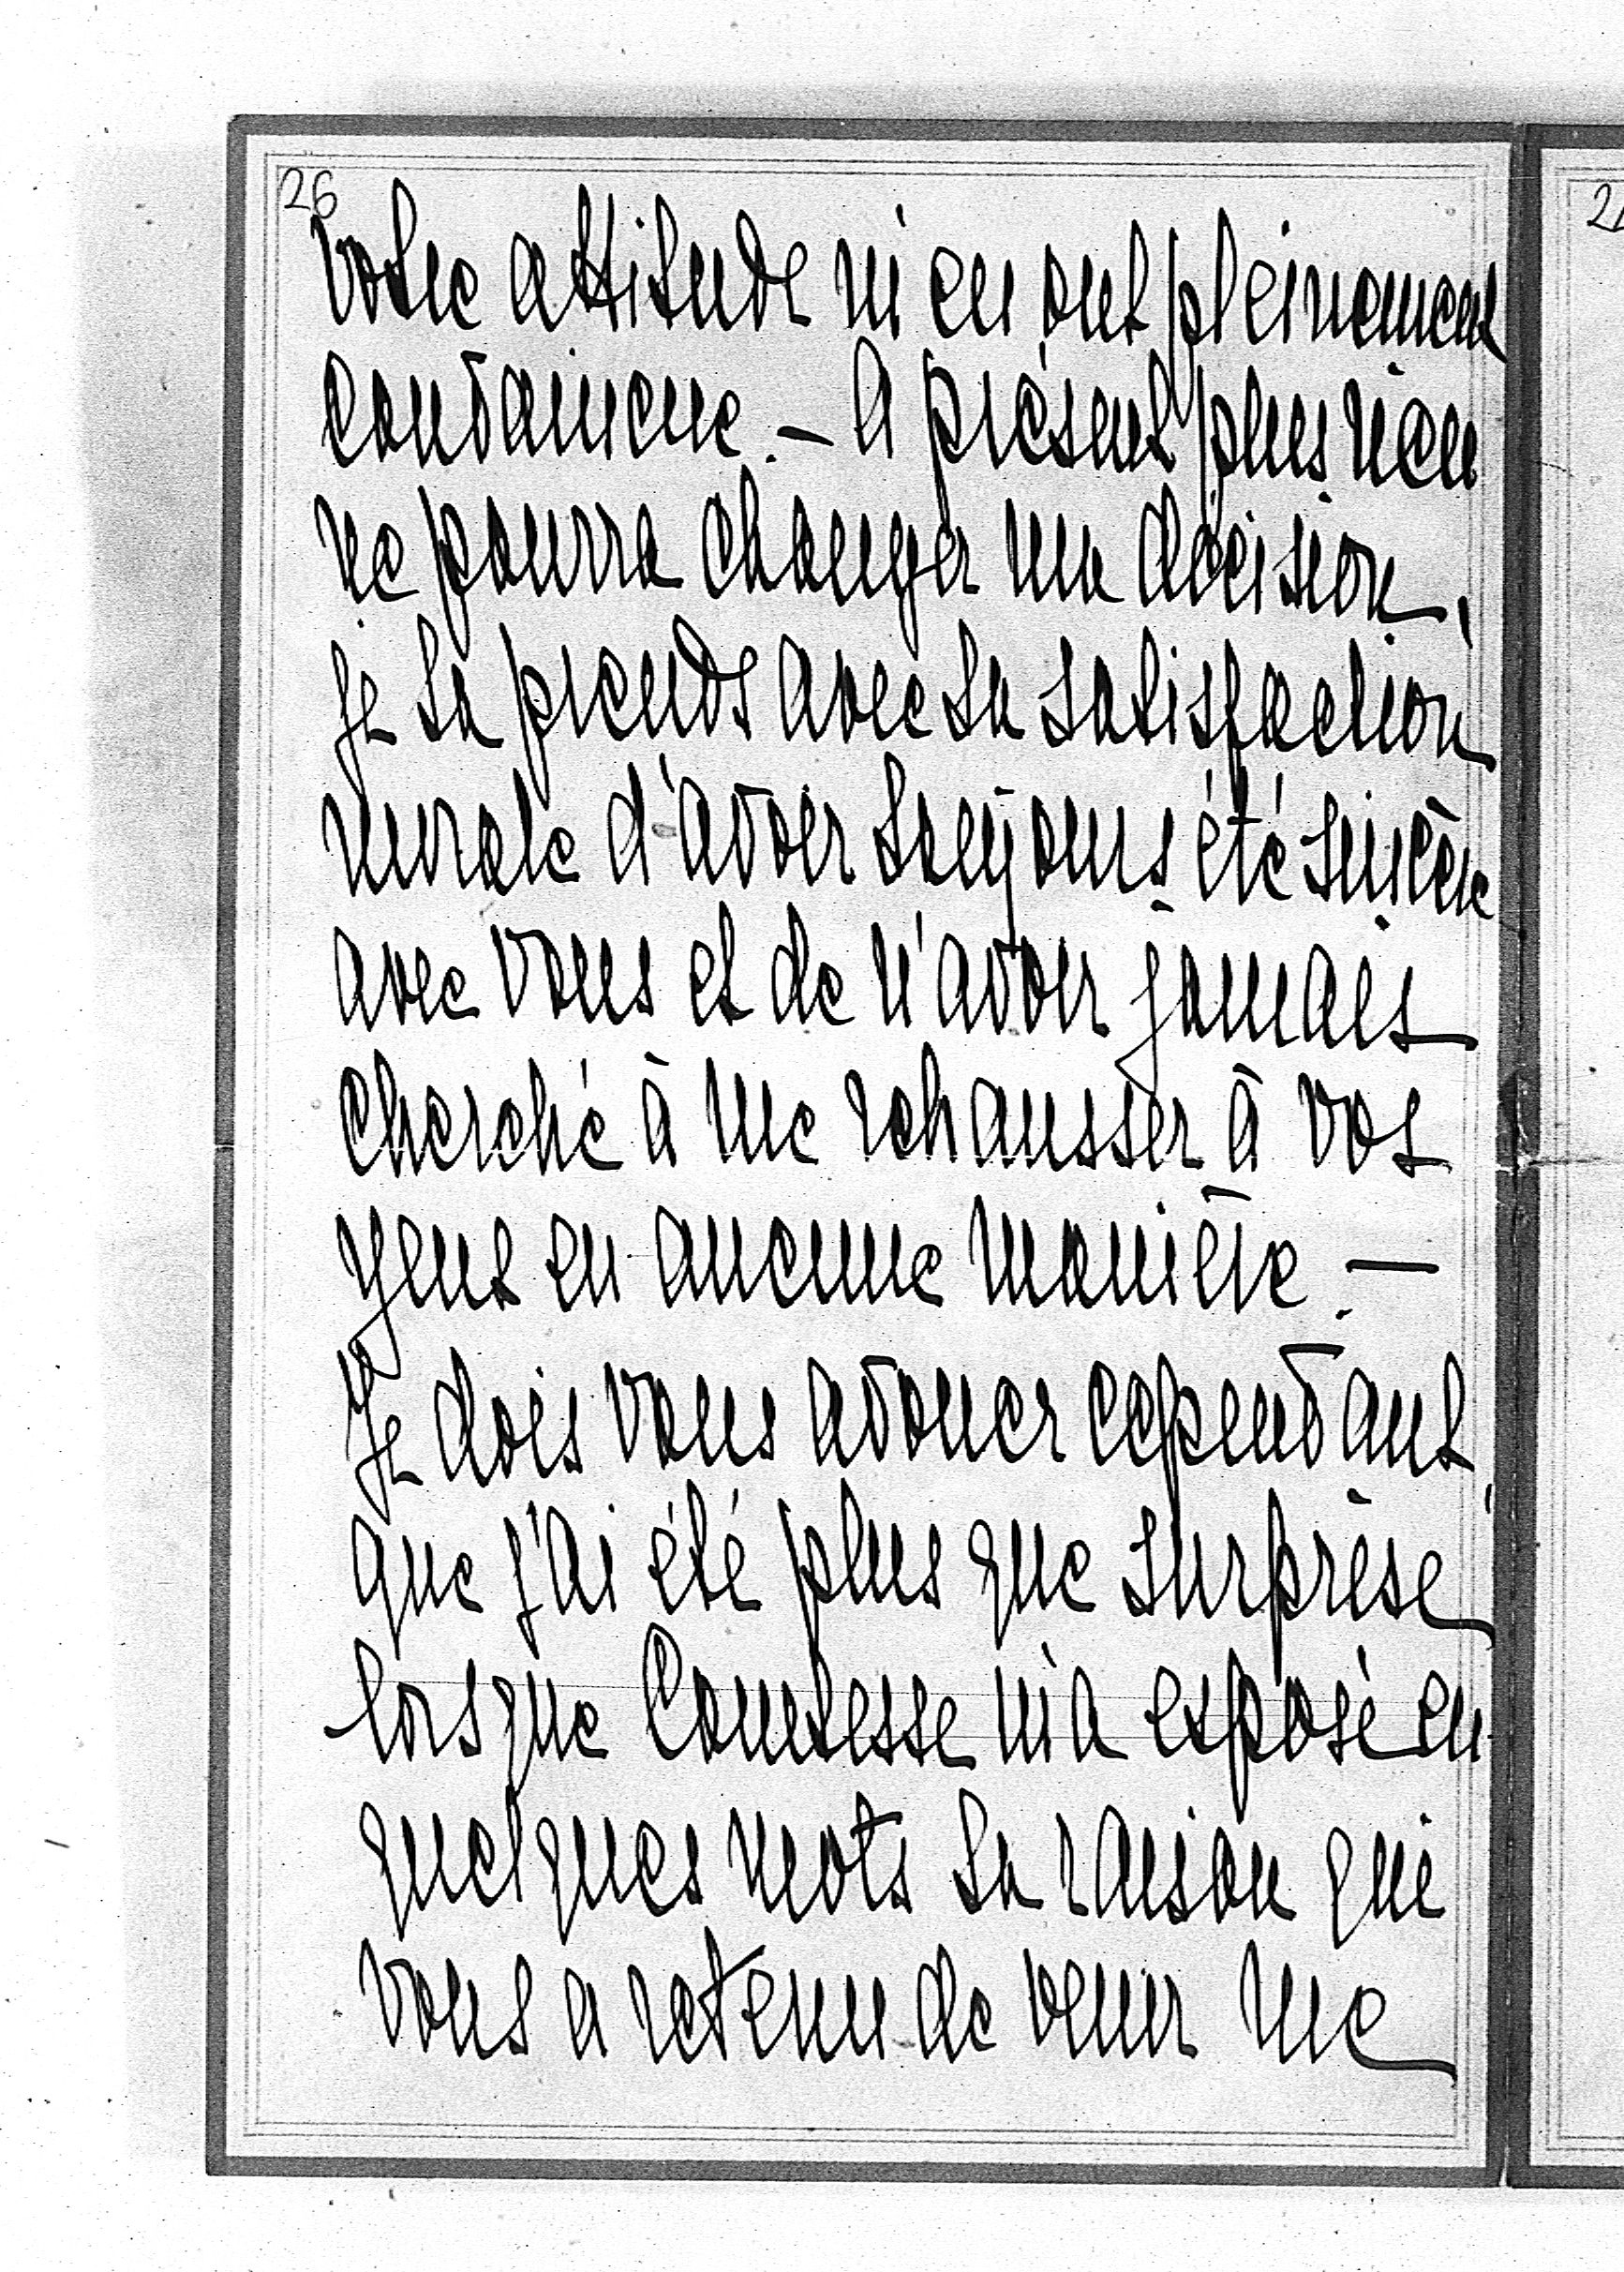 26
votre attitude m'en ont pleinement
convaincue. — A présent plus rien
ne pourra changer ma décision,
je la prends avec la satisfaction
morale d'avoir toujours été sincère
avec vous et de n'avoir jamais
cherché à me rehausser à vos
yeux en aucune manière. —
Je dois vous avouer cependant,
que j'ai été plus que surprise
lorsque Comtesse m'a exposé en
quelques mots la raison qui
vous a retenu de venir me